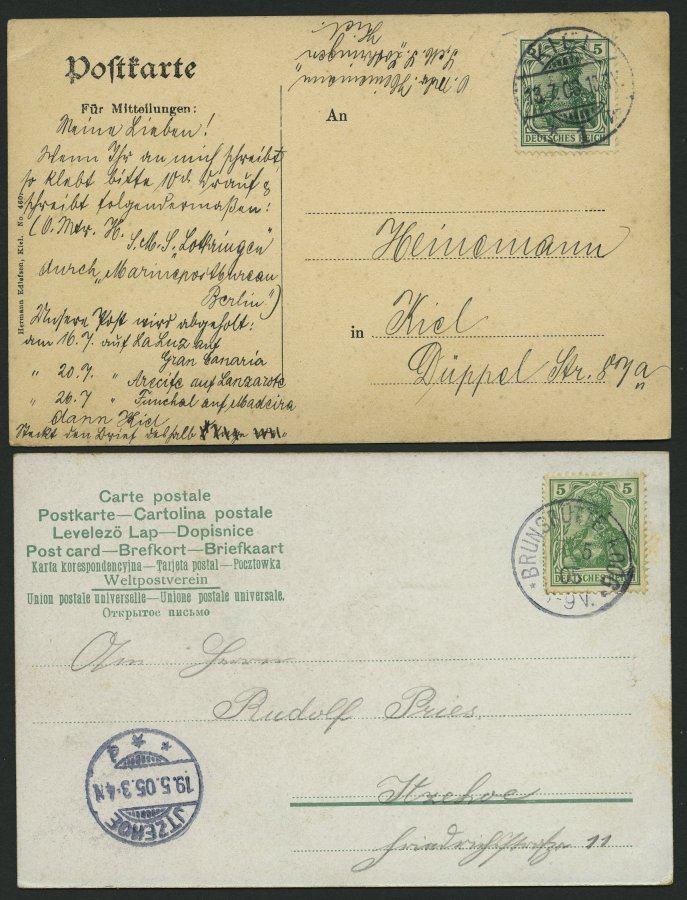 Postkarte
Für Mitteilungen:
Meine Lieben!
Wenn Ihr an mich schreibt,
so klebt bitte 10 d. drauf &
schreibt folgendermaßen:
(O. Mtr. H.
S.M.S. Lothringen"
durch „Marinepostbureau
Berlin")
Unsere Post wird abgeholt:
am 16.7. auf La Luz auf
Gran Canaria
" 20.7. " Arecife auf Lanzarote
" 26.7 " Funchal auf Madeira
dann Kiel
Steckt den Brief deshalb
Hermann Edlefsen, Kiel. No. 460
O. Mtr. Heinemann
S.M.S. „Lothringen"
Kiel.
An
Heinemann
in Kiel
Düppel Str. 87a
KIEL
13.7.08
1
5
DEUTSCHES REICH
Carte postale
Postkarte—Cartolina postale
Levelező Lap—Dopisnice
Post card—Brefkort—Briefkaart
Karta korespondencyjna—Tarjeta postal—Pocztowka
Weltpostverein
Union postale universelle—Unione postale universale.
Открытое письмо
5 5
DEUTSCHES REICH
*BRUNSBÜTTEL
5
05
-9V.
An Herrn
Rudolf Pries.
Itzehoe
Friedrichstraße 11
* * a
19.5.05.3-4N
ITZEHOE